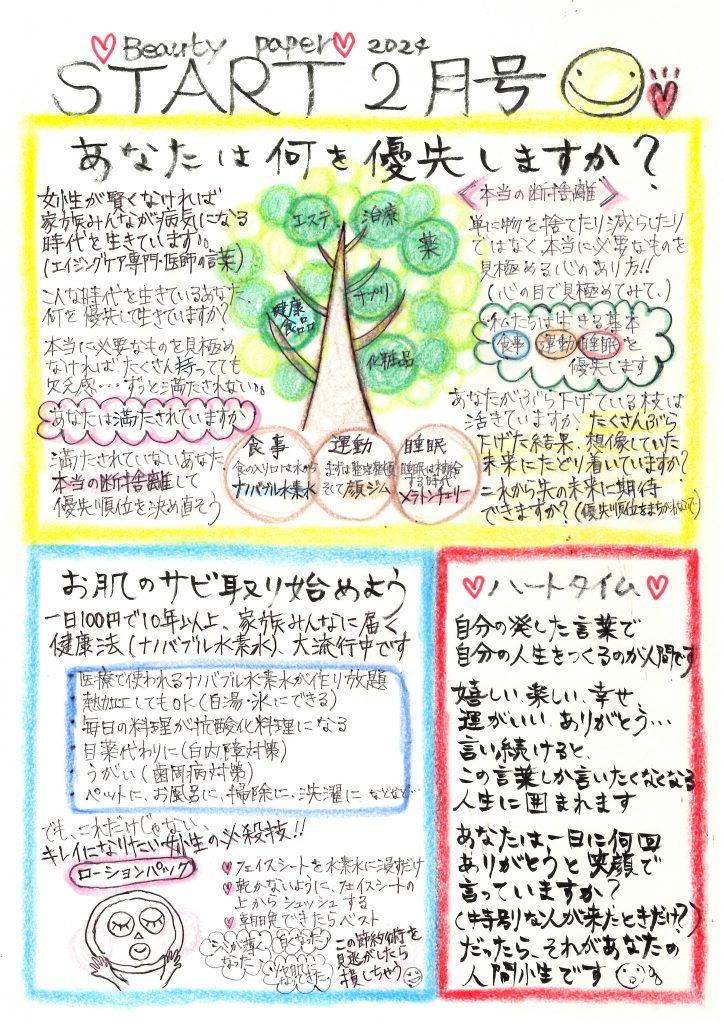 Beauty paper 2024
START 2月号
あなたは何を優先しますか?
女性が賢くなければ
家族みんなが病気になる
時代を生きています。。
(エイジングケア専門・医師の言葉)
こんな時代を生きているあなた、
何を優先して生きていますか?
本当に必要なものを見極め
なければたくさん持ってても
欠乏感・・・ずっと満たされない。。
あなたは満たされていますか
満たされていないあなた、
本当の断捨離して
優先順位を決め直そう
エステ
治療
薬
サプリ
健康
食品
化粧品
食事
食の入り口は水から
ナノバブル水素水
運動
まずは整理整頓
そして顔ジム
睡眠
睡眠は補給
する時代
メラトンチェリー
本当の断捨離
単に物を捨てたり減らしたり
ではなく、本当に必要なものを
見極める心のあり方!!
(心の目で見極めてみて、)
私たちは生きる基本
食事 運動 睡眠を
優先します
あなたがぶら下げている枝は
活きていますか、たくさんぶら
下げた結果、想像していた
未来にたどり着いていますか?
これから先の未来に期待
できますか?(優先順位をまちがわないで)
お肌のサビ取り始めよう
一日100円で10年以上、家族みんなに届く
健康法(ナノバブル水素水)、大流行中です
・医療で使われるナノバブル水素水が作り放題
・熱加工してもOK(白湯・氷にできる)
・毎日の料理が抗酸化料理になる
・目薬代わりに(白内障対策)
・うがい(歯周病対策)
・ペットに、お風呂に、掃除に、洗濯に などなど
でも、これだけじゃない、
キレイになりたい女性の必殺技!!
ローションパック
フェイスシートを水素水に浸すだけ
乾かないように、フェイスシートの
上からシュッシュする
朝晩できたらベスト
シミが薄く
なった
白くなった
この節約術を
見逃がしたら
損しちゃう
ハートタイム
自分の発した言葉で
自分の人生をつくるのが人間です
嬉しい、楽しい、幸せ、
運がいい、ありがとう・・・
言い続けると、
この言葉しか言いたくなくなる
人生に囲まれます
あなたは、一日に何回
ありがとうと笑顔で
言っていますか?
(特別な人が来たときだけ?)
だったら、それがあなたの
人間性です